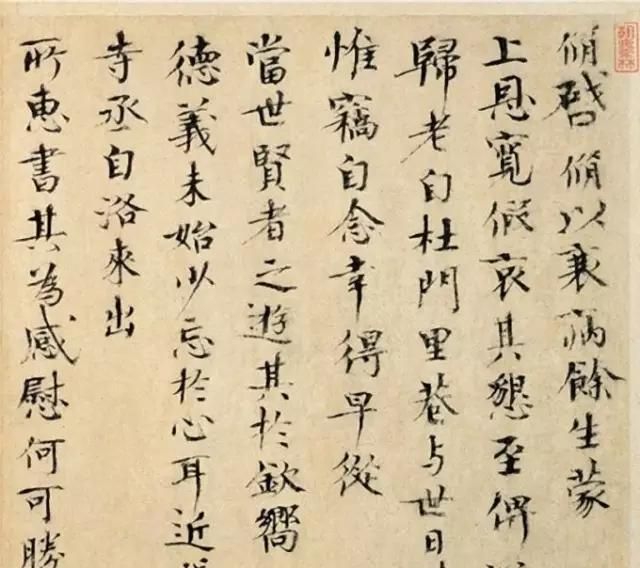 脩啓脩以衰病餘生蒙
上恩寬假哀其懇至俾
歸老自杜門里巷与世日
惟竊自念幸得早從
當世賢者之遊其於欽嚮
德義未始少忘於心耳近
寺丞自洛來出
所惠書其為感慰何可勝